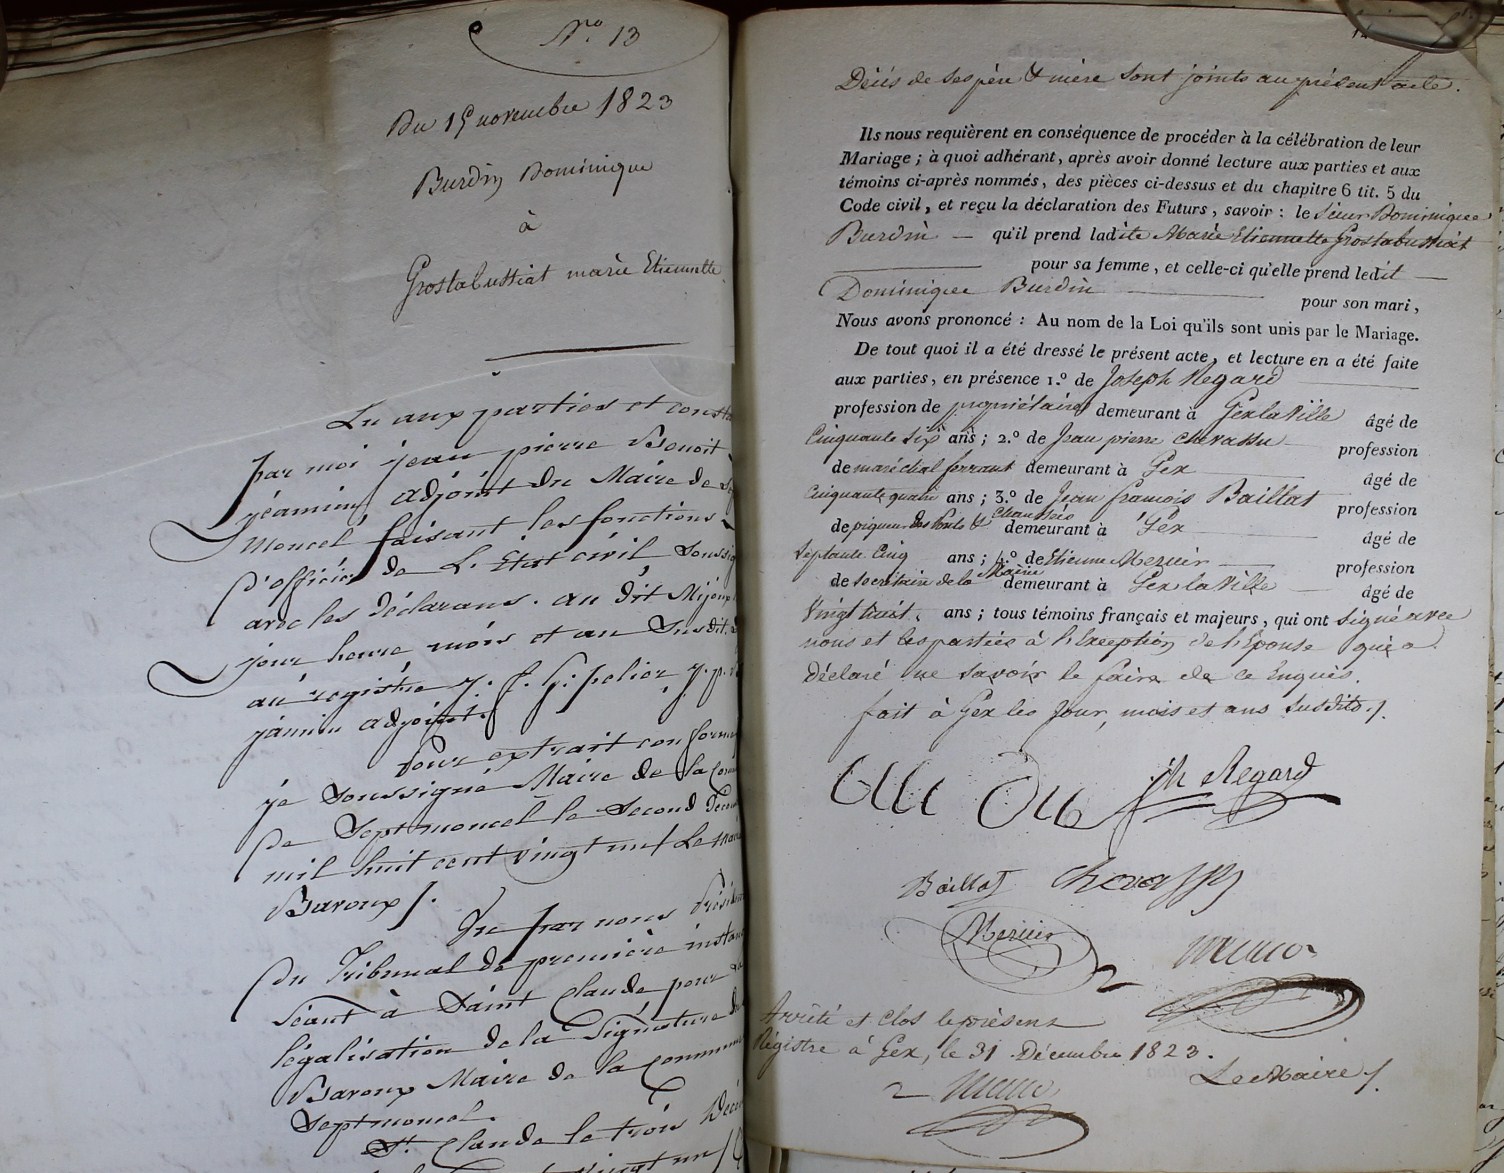 N.o 13
Du 15 novembre 1823
Burdin Dominique
à
Grostabussiat marie Etiennette
Lu aux parties et consta
par moi jean pierre Benoit
jéannin adjoint du Maire de Sep
moncel faisant les fonctions
d'officier de L'Etat civil soussig
avec les déclarans. au dit Mijoux
jour heure mois et an Susdit.
au registre J. f. G: pelier j. p.
jannin adjoint.
Pour extrait conforme
je Soussigné Maire de la Com
de Septmoncel le Second Décem
mil huit cent vingt un / Le Mair
Baroux /.
Vu par nous Présiden
du Tribunal de première instan
séant à Saint Claude pour la
légalisation de la Signature du
Baroux Maire de la Commune
Septmoncel.
St. Claude le trois Décem
vingt un /
Décès de ses père & mère sont joints au présent acte.
Ils nous requièrent en conséquence de procéder à la célébration de leur
Mariage ; à quoi adhérant, après avoir donné lecture aux parties et aux
témoins ci-après nommés, des pièces ci-dessus et du chapitre 6 tit. 5 du
Code civil, et reçu la déclaration des Futurs, savoir : le Sieur Dominique
Burdin — qu'il prend ladite Marie Etiennette Grostabussiat
pour sa femme, et celle-ci qu'elle prend ledit —
Dominique Burdin pour son mari,
Nous avons prononcé : Au nom de la Loi qu'ils sont unis par le Mariage.
De tout quoi il a été dressé le présent acte, et lecture en a été faite
aux parties, en présence 1.º de Joseph Regard
profession de propriétaire demeurant à Gex la Ville âgé de
Cinquante six ans ; 2.º de Jean pierre Chevassu profession
de maréchal ferrant demeurant à Gex âgé de
Cinquante quatre ans ; 3.º de Jean francois Baillat profession
de piqueur des Ponts & Chaussées demeurant à Gex âgé de
Septante Cinq ans ; 4.º de Etienne Mercier profession
de secrétaire de la Mairie demeurant à Gex la Ville âgé de
Vingt huit ans ; tous témoins français et majeurs, qui ont signé avec
nous et les parties à l'Exception de l'Épouse qui a
déclaré ne savoir le faire de ce Enquis.
fait à Gex les Jour, mois et ans susdits /.
jh Regard
Baillat Chevassu
Mercier
Arrêté et Clos le présent
Régistre à Gex, le 31 Décembre 1823.
Le Maire /.